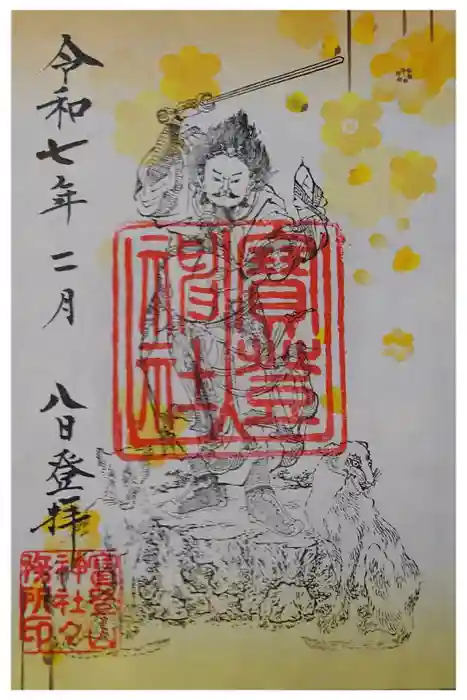 令和七年二月八日登拝
寶登
神社
寶登山
神社々
務所印